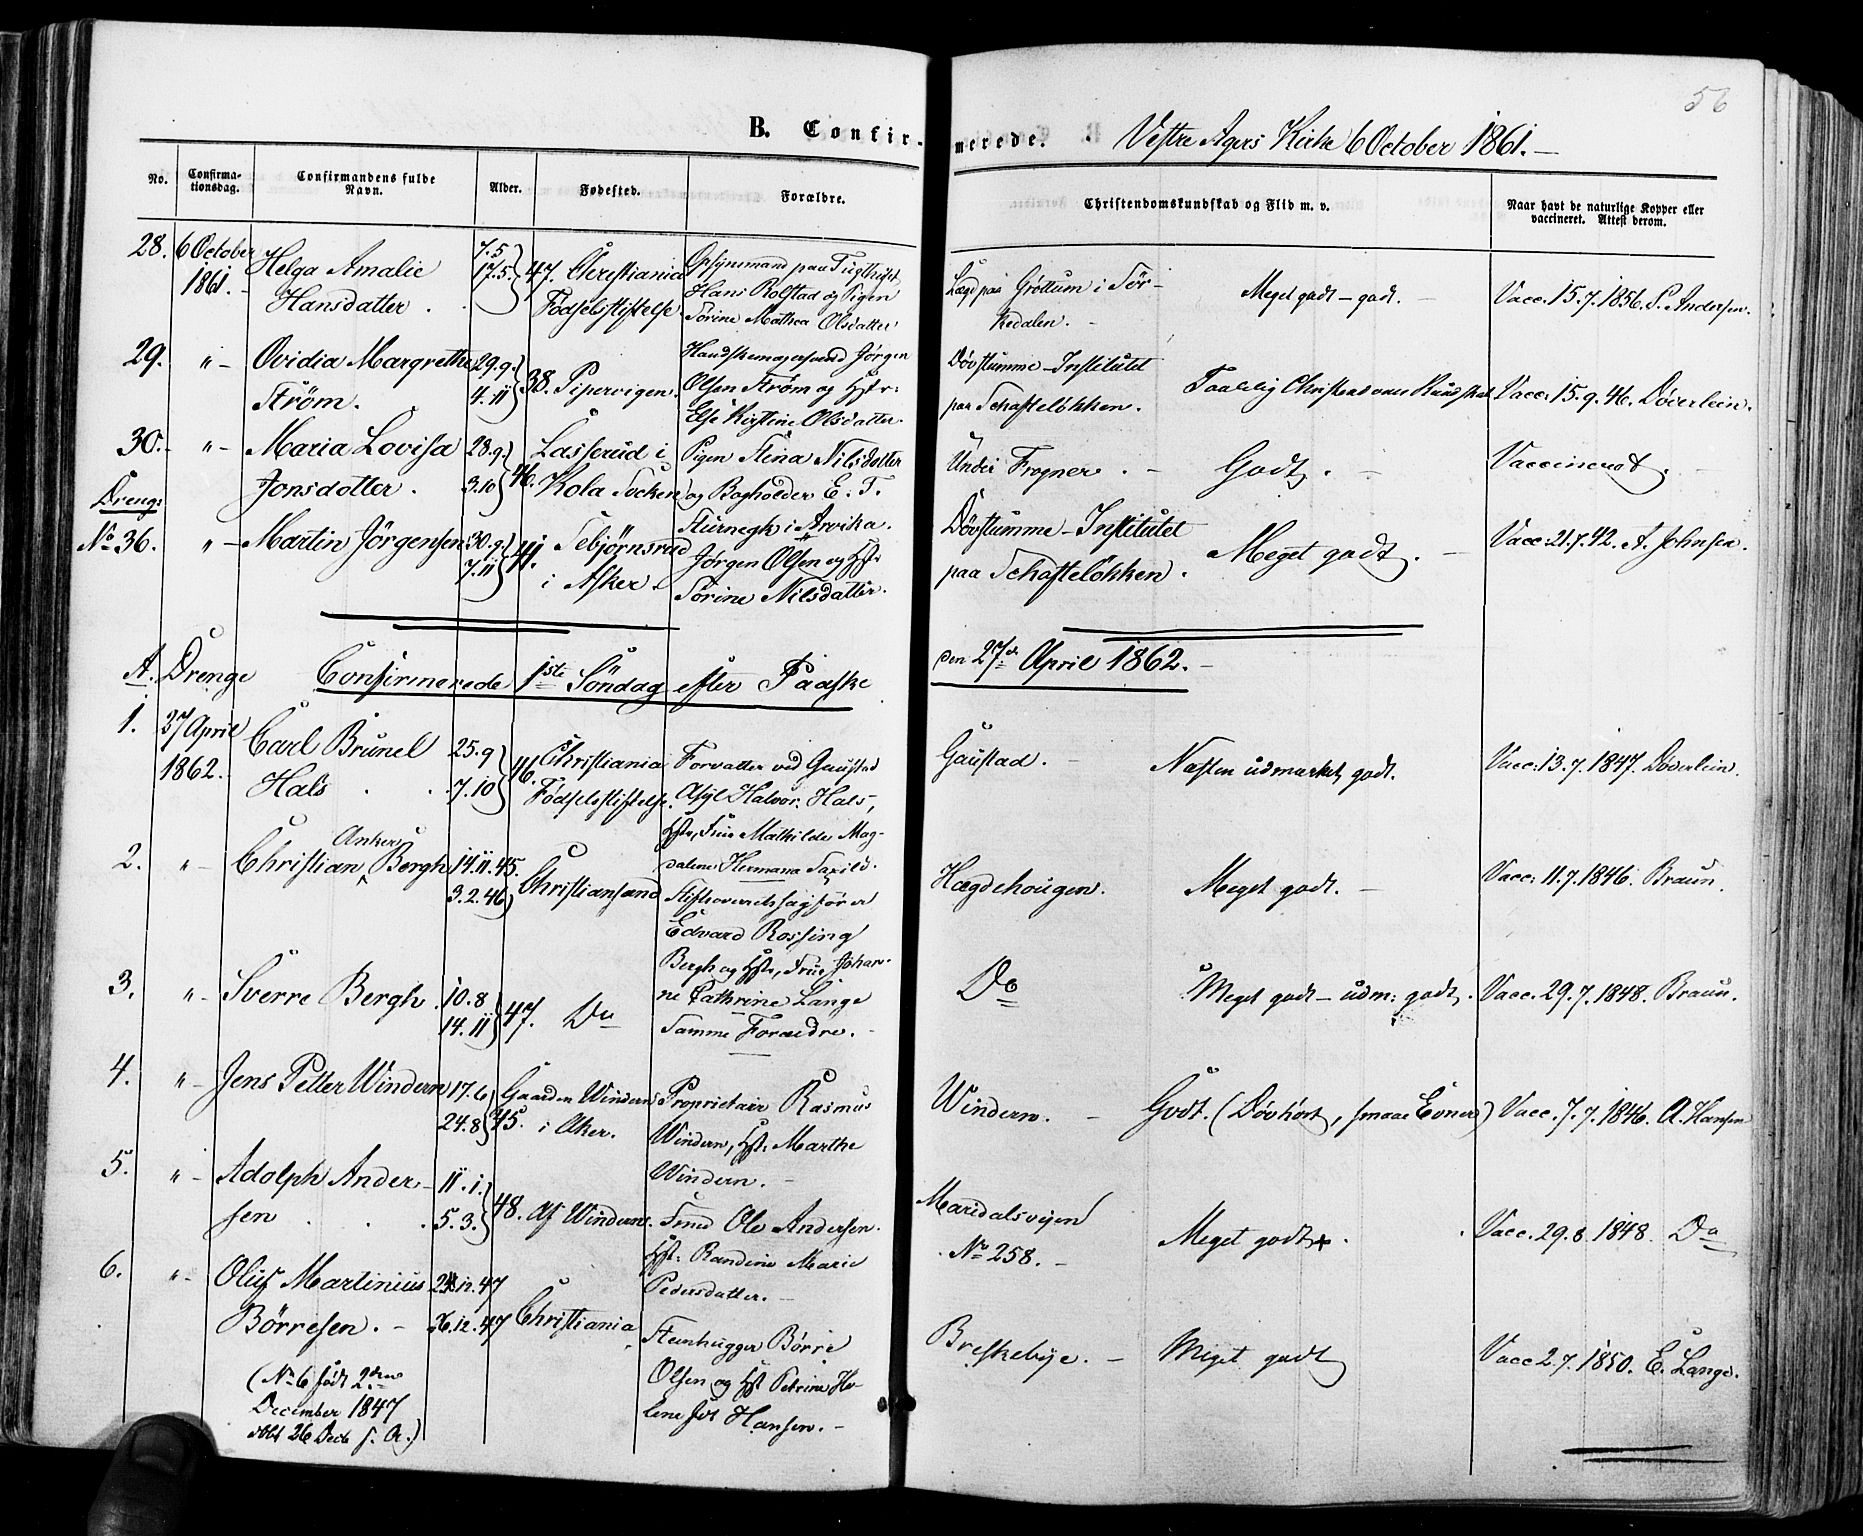 56
B. Confirmerede. Vestre Agers Kirke 6 October 1861. -
No.
Confirma-
tionsdag.
Confirmandens fulde
Navn.
Alder.
Fødested.
Forældre.
Christendomskundskab og Flid m. v.
Naar havt de naturlige Kopper eller
vaccineret. Attest derom.
28. 6 October
1861. -
Helga Amalie
Hansdatter .
7.5
17.5. } 47.
Christiania
Fødselsstiftelse.
Opsynsmand paa Tugthuset
Hans Rolstad og Pigen
Sørine Mathea Olsdatter
Lægd paa Grøttum i Sør-
kedalen. -
Meget godt - godt. -
Vacc. 15.7.1856. P. Andersen.
29. " -
Ovidia Margrethe
Strøm.
29.9.
4.11 } 38.
Pipervigen.
Handskemagersvend Jørgen
Olsen Strøm og Hstr:
Else Kirstine Olsdatter.
Døvstumme-Institutet
paa Schafteløkken.
Taalelig Christendoms Kundskab
Vacc: 15.9.46. Døverlein.
30. " -
Maria Lovisa
Jonsdotter .
28.9.
3.10 } 46.
Lasserud i
Kola Socken
Pigen Stina Nilsdotter
og Bogholder E. T.
Sturnegk i Arvika.
Under Frogner. -
Godt. -
Vaccineret. -
Dreng:
No 36. " -
Martin Jörgensen
30.9.
7.11 } 41.
Tebjørnsrud
i Asker.
Jørgen Olsen og Hst:
Sørine Nilsdatter.
Døvstumme-Institutet
paa Schafteløkken.
Meget godt. -
Vacc: 21.7.42. A. Johnsen.
A. Drenge Confirmerede 1ste Söndag efter Paaske den 27de April 1862. -
1. 27 April
1862.
Carl Brunel
Hals . .
25.9
7.10 } 46.
Christiania
Fødselsstiftelse.
Forvalter ved Gaustad
Asyl Halvor Hals,
Hstr, Frue Mathilde Mag-
dalene Hermana Saxild.
Gaustad. -
Næsten udmærket godt.
Vacc: 13.7.1847. Döverlein.
2. " -
Christian Anker Bergh
14.11.45.
3.2.46
Christiansand
Stiftsoverretssagfører
Edvard Rossing
Bergh og Hstr, Frue Johan-
ne Cathrine Lange
Hægdehougen.
Meget godt. -
Vacc: 11.7.1846. Braun.
3. " -
Sverre Bergh.
10.8
14.11 } 47.
Do
Samme Forældre. -
Do
Meget godt - udm: godt.
Vacc. 29.7.1848. Braun.
4. " -
Jens Petter Windern
17.6
24.8 } 45.
Gaarden Windern
i Aker.
Proprietair Rasmus
Windern, Hst: Marthe
Windern. -
Windern. -
Godt. (Døvhört, smaae Evner)
Vacc. 7.7.1846. A. Hansen
5. " -
Adolph Ander-
sen . . .
11.1.
5.3. } 48.
Af Windern.
Smed Ole Andersen.
Hst: Randine Marie
Pedersdatter. -
Maridalsvejen
No 258. -
Meget godt.
Vacc. 29.8.1848. Do
6. " -
Oluf Martinius
Börresen. -
12.47
26.12.47
Christiania
Steenhugger Børre
Olsen og Hst Petrine He-
lene fdt Hansen. -
Breskebye. -
Meget godt
Vacc 2.7.1850. E. Lange.
(No 6 født 2den
December 1847
døbt 26 Decb s. A.)